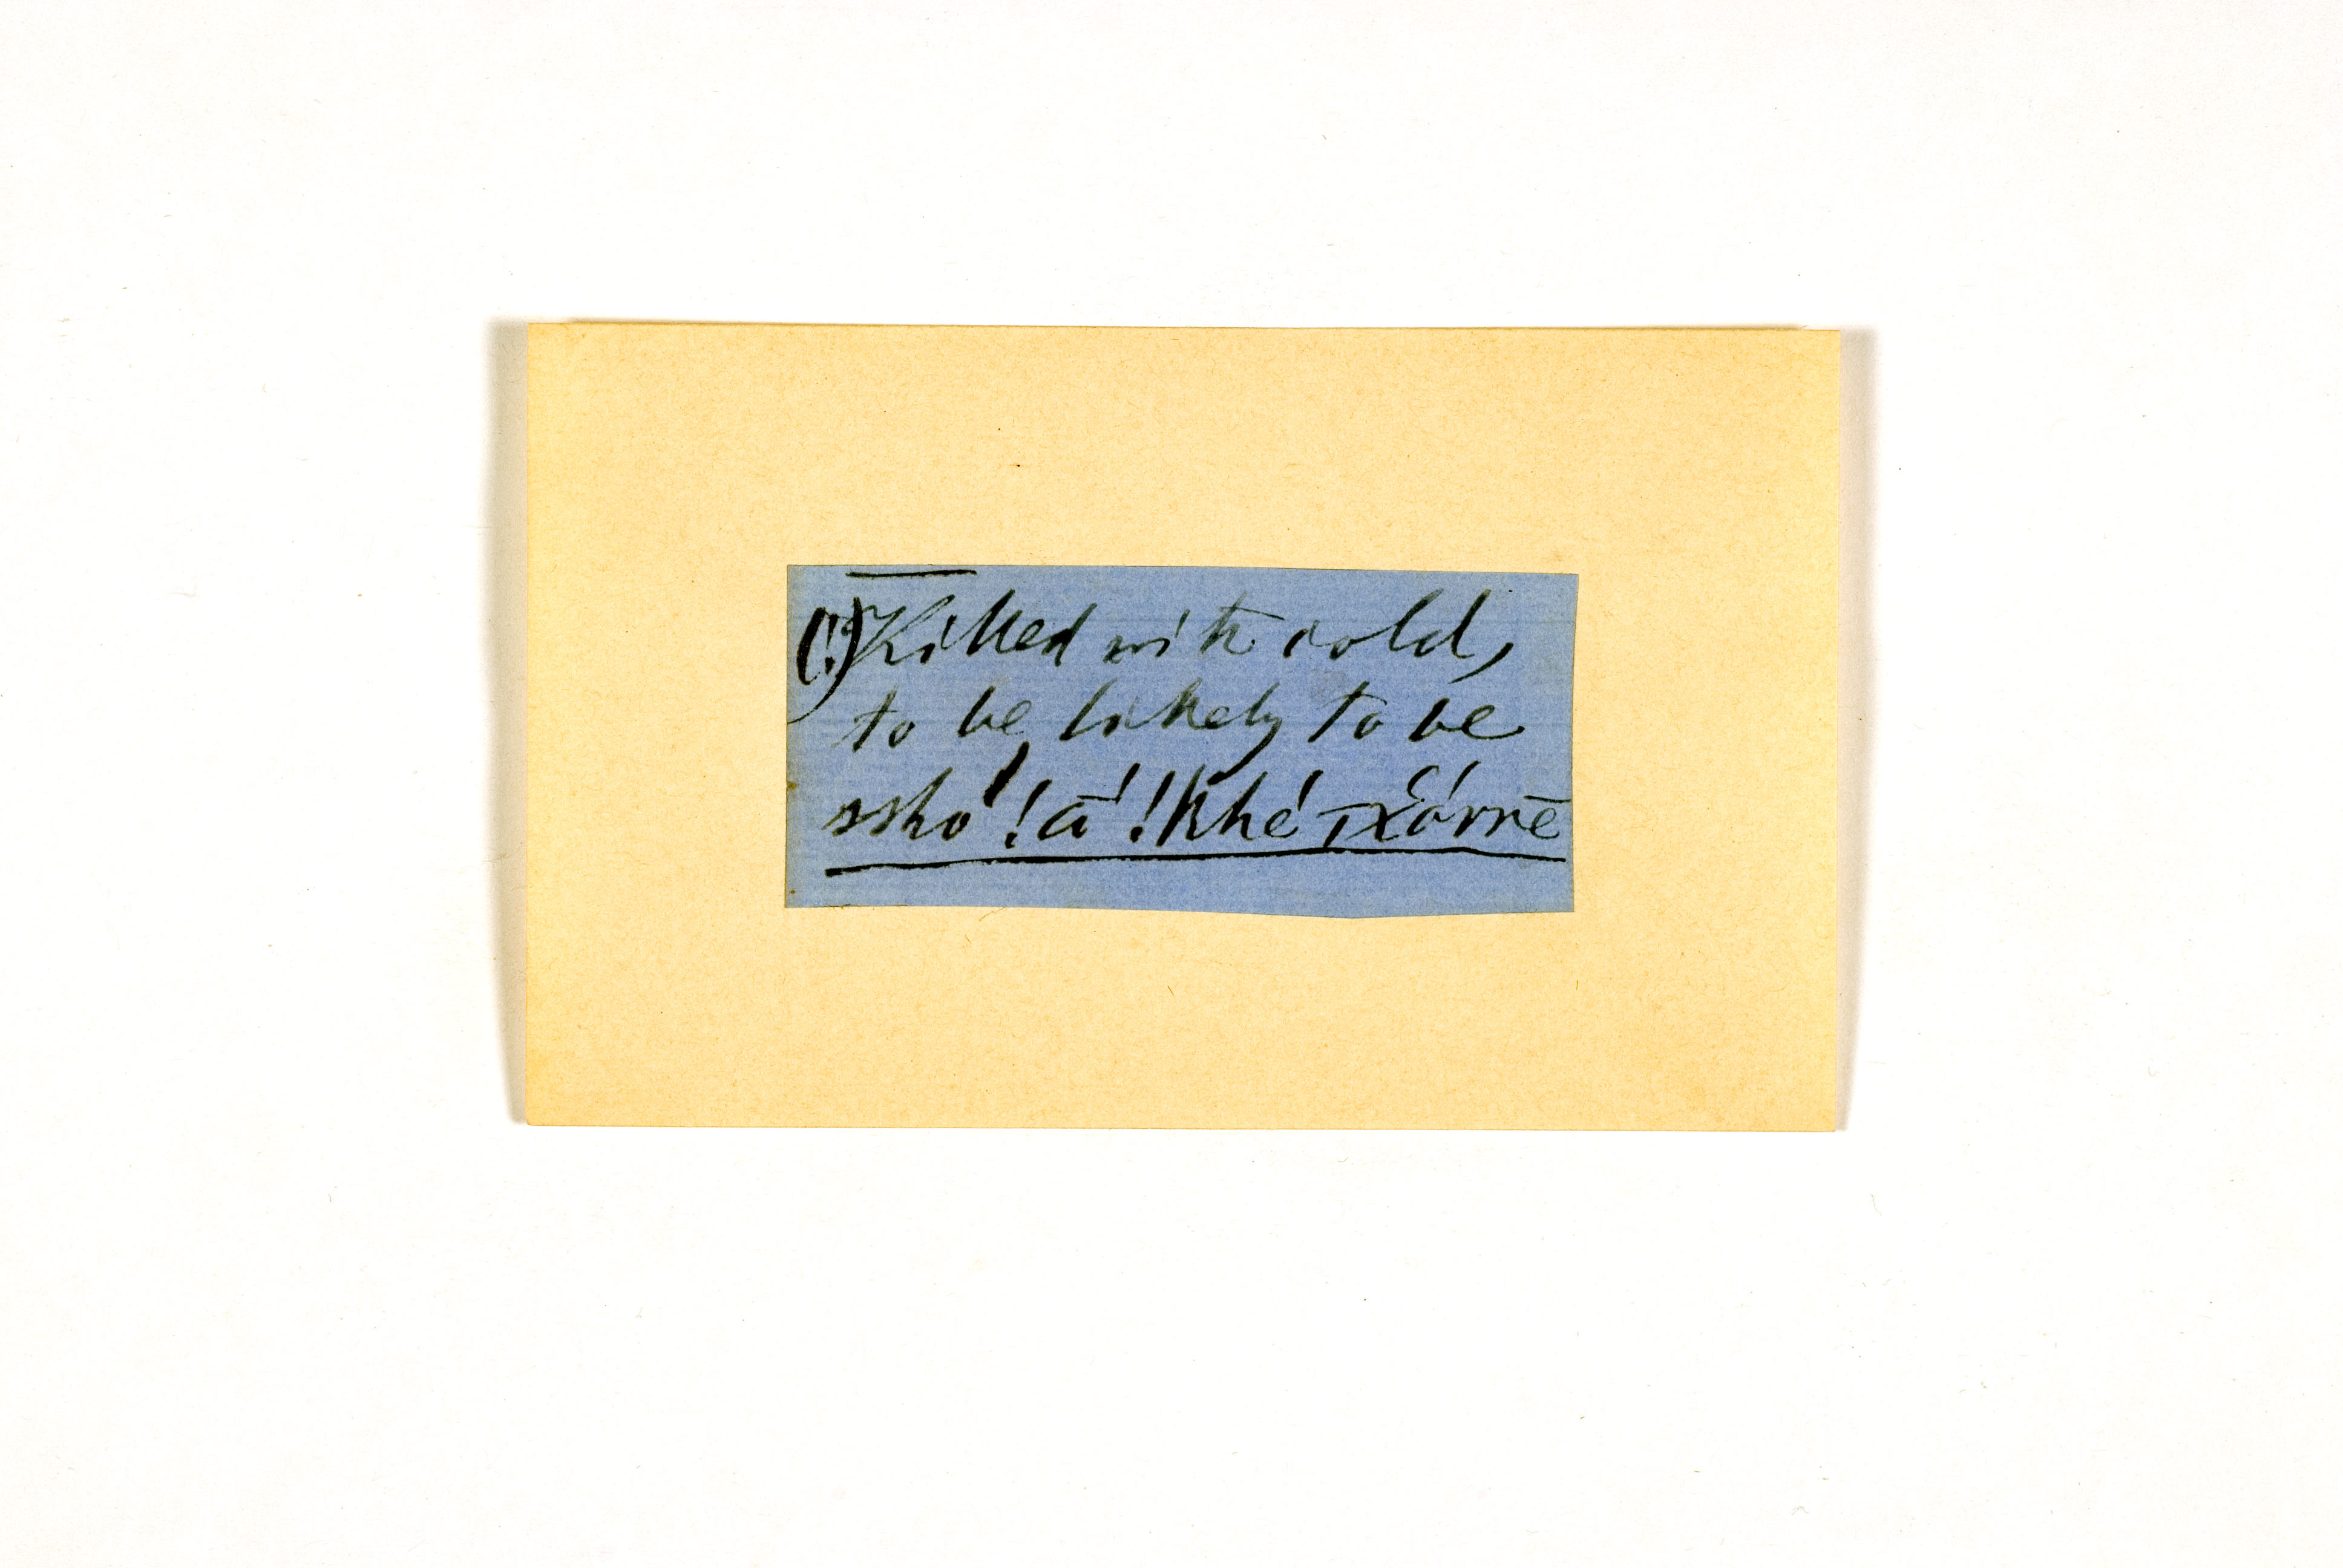 (!) Killed with cold,
to be likely to be
ssho ! ā́ !khé